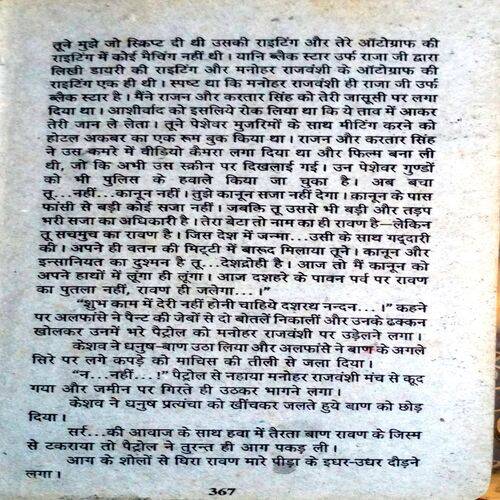 तूने मुझे जो स्क्रिप्ट दी थी उसकी राइटिंग और तेरे ऑटोग्राफ की
राइटिंग में कोई मैचिंग नहीं थी। यानि ब्लैक स्टार उर्फ राजा जी द्वारा
लिखी डायरी की राइटिंग और मनोहर राजवंशी के ऑटोग्राफ की
राइटिंग एक ही थी। स्पष्ट था कि मनोहर राजवंशी ही राजा जी उर्फ
ब्लैक स्टार है। मैंने राजन और करतार सिंह को तेरी जासूसी पर लगा
दिया था। आशीर्वाद को इसलिये रोक लिया था कि ये ताव में आकर
तेरी जान ले लेता। तूने पेशेवर मुजरिमों के साथ मीटिंग करने को
होटल अकबर का एक रूम बुक किया था। राजन और करतार सिंह
ने उस कमरे में वीडियो कैमरा लगा दिया था और फिल्म बना ली
थी, जो कि अभी उस स्क्रीन पर दिखलाई गई। उन पेशेवर गुण्डों
को भी पुलिस के हवाले किया जा चुका है। अब बचा
तू...नहीं...कानून नहीं। तुझे कानून सजा नहीं देगा। कानून के पास
फांसी से बड़ी कोई सजा नहीं। जबकि तू उससे भी बड़ी और तड़प
भरी सजा का अधिकारी है। तेरा बेटा तो नाम का ही रावण है—लेकिन
तू सचमुच का रावण है। जिस देश में जन्मा...उसी के साथ गद्दारी
की। अपने ही वतन की मिट्टी में बारूद मिलाया तूने। कानून और
इन्सानियत का दुश्मन है तू...देशद्रोही है। आज तो मैं कानून को
अपने हाथों में लूंगा ही लूंगा। आज दशहरे के पावन पर्व पर रावण
का पुतला नहीं, रावण ही जलेगा...।"
"शुभ काम में देरी नहीं होनी चाहिये दशरथ नन्दन...।" कहने
पर अलफांसे ने पैन्ट की जेबों से दो बोतलें निकालीं और उनके ढक्कन
खोलकर उनमें भरे पैट्रोल को मनोहर राजवंशी पर उड़ेलने लगा।
केशव ने धनुष-बाण उठा लिया और अलफांसे ने बाण के अगले
सिरे पर लगे कपड़े को माचिस की तीली से जला दिया।
"न...नहीं...!" पैट्रोल से नहाया मनोहर राजवंशी मंच से कूद
गया और जमीन पर गिरते ही उठकर भागने लगा।
केशव ने धनुष प्रत्यंचा को खींचकर जलते हुये बाण को छोड़
दिया।
सर्र...की आवाज के साथ हवा में तैरता बाण रावण के जिस्म
से टकराया तो पैट्रोल ने तुरन्त ही आग पकड़ ली।
आग के शोलों से घिरा रावण मारे पीड़ा के इधर-उधर दौड़ने
लगा।
367